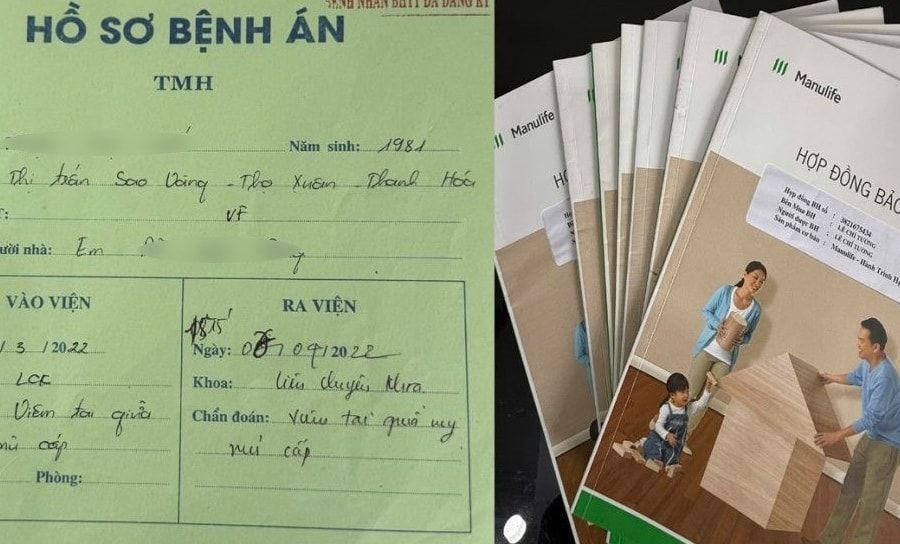 BỆNH NHÂN BHYT ĐÃ ĐĂNG KÝ
HỒ SƠ BỆNH ÁN
TMH
Năm sinh: 1981
Thị trấn Sao Vàng - Thọ Xuân - Thanh Hóa
VT
gười nhà: Em
VÀO VIỆN
/3/2022
LCK
Viêm tai giữa
mủ cấp
Phòng:
RA VIỆN
Ngày: /2022
Khoa: liên chuyên khoa
Chẩn đoán: Viêm tai giữa
mủ cấp
Manulife
Manulife
Manulife
HỢP ĐỒNG BẢO
Hợp đồng BH số : 3821675434
Bên Mua BH : LÊ CHÍ TƯỜNG
Người được BH : LÊ CHÍ TƯỜNG
Sản phẩm cơ bản : Manulife - Hành Trình Hạ